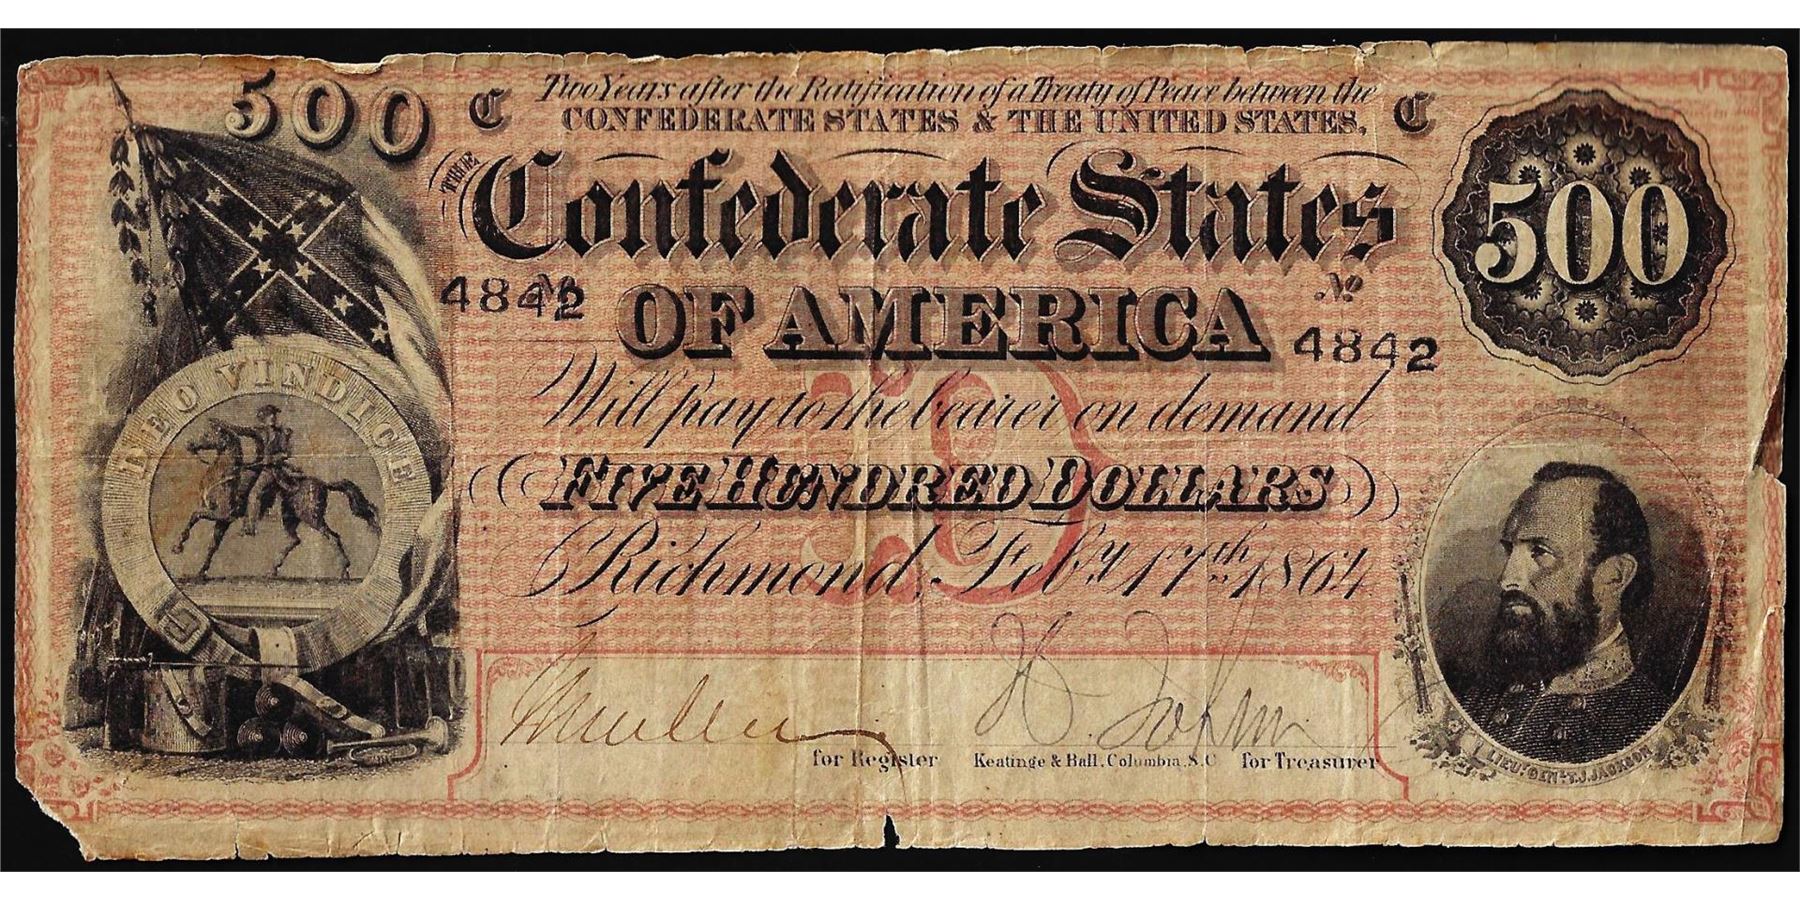 500 C Two Years after the Ratification of a Treaty of Peace between the C
CONFEDERATE STATES & THE UNITED STATES,
THE Confederate States
500
4842 No No
OF AMERICA 4842
Will pay to the bearer on demand
DEO VINDICE
FIVE HUNDRED DOLLARS
Richmond, Feby. 17th. 1864
for Register Keatinge & Ball, Columbia, S.C for Treasurer
LIEUT. GENL. T.J. JACKSON